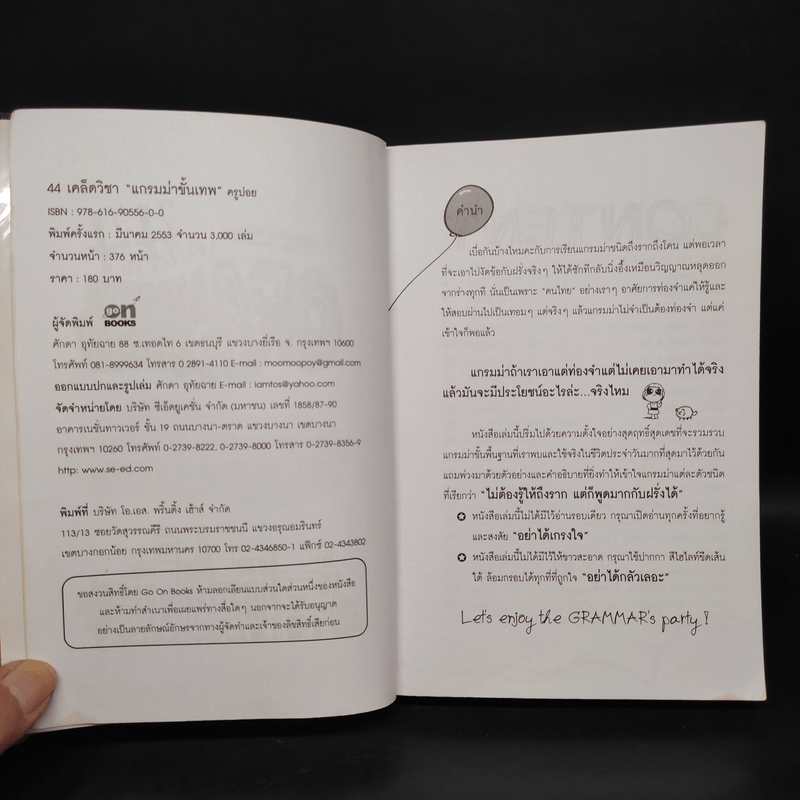 44 เคล็ดวิชา "แกรมม่าขั้นเทพ" ครูปอย
ISBN : 978-616-90556-0-0
พิมพ์ครั้งแรก : มีนาคม 2553 จำนวน 3,000 เล่ม
จำนวนหน้า : 376 หน้า
ราคา : 180 บาท
ผู้จัดพิมพ์ go on BOOKS
ศักดา อุทัยฉาย 88 ซ.เทอดไท 6 เขตธนบุรี แขวงบางยี่เรือ จ. กรุงเทพฯ 10600
โทรศัพท์ 081-8999634 โทรสาร 0 2891-4110 E-mail : moomoopoy@gmail.com
ออกแบบปกและรูปเล่ม ศักดา อุทัยฉาย E-mail : iamtos@yahoo.com
จัดจำหน่ายโดย บริษัท ซีเอ็ดยูเคชั่น จำกัด (มหาชน) เลขที่ 1858/87-90
อาคารเนชั่นทาวเวอร์ ชั้น 19 ถนนบางนา-ตราด แขวงบางนา เขตบางนา
กรุงเทพฯ 10260 โทรศัพท์ 0-2739-8222, 0-2739-8000 โทรสาร 0-2739-8356-9
http: www.se-ed.com
พิมพ์ที่ บริษัท โอ.เอส. พริ้นติ้ง เฮ้าส์ จำกัด
113/13 ซอยวัดสุวรรณคีรี ถนนพระบรมราชชนนี แขวงอรุณอมรินทร์
เขตบางกอกน้อย กรุงเทพมหานคร 10700 โทร 02-4346850-1 แฟ็กซ์ 02-4343802
ขอสงวนสิทธิ์โดย Go On Books ห้ามลอกเลียนแบบส่วนใดส่วนหนึ่งของหนังสือ
และห้ามทำสำเนาเพื่อเผยแพร่ทางสื่อใดๆ นอกจากจะได้รับอนุญาต
อย่างเป็นลายลักษณ์อักษรจากทางผู้จัดทำและเจ้าของลิขสิทธิ์เสียก่อน
คำนำ
เบื่อกันบ้างไหมคะกับการเรียนแกรมม่าชนิดถึงรากถึงโคน แต่พอเวลา
ที่จะเอาไปงัดข้อกับฝรั่งจริงๆ ให้ได้ซักทีกลับนิ่งอึ้งเหมือนวิญญาณหลุดออก
จากร่างทุกที นั่นเป็นเพราะ "คนไทย" อย่างเราๆ อาศัยการท่องจำแค่ให้รู้และ
ให้สอบผ่านไปเป็นเทอมๆ แต่จริงๆ แล้วแกรมม่าไม่จำเป็นต้องท่องจำ แต่แค่
เข้าใจก็พอแล้ว
แกรมม่าถ้าเราเอาแต่ท่องจำแต่ไม่เคยเอามาทำได้จริง
แล้วมันจะมีประโยชน์อะไรล่ะ...จริงไหม
หนังสือเล่มนี้ปริ่มไปด้วยความตั้งใจอย่างสุดฤทธิ์สุดเดชที่จะรวมรวบ
แกรมม่าขั้นพื้นฐานที่เราพบและใช้จริงในชีวิตประจำวันมากที่สุดมาไว้ด้วยกัน
แถมพ่วงมาด้วยตัวอย่างและคำอธิบายที่ยิ่งทำให้เข้าใจแกรมม่าแต่ละตัวชนิด
ที่เรียกว่า "ไม่ต้องรู้ให้ถึงราก แต่ก็พูดมากกับฝรั่งได้"
หนังสือเล่มนี้ไม่ได้มีไว้อ่านรอบเดียว กรุณาเปิดอ่านทุกครั้งที่อยากรู้
และสงสัย "อย่าได้เกรงใจ"
หนังสือเล่มนี้ไม่ได้มีไว้ให้ขาวสะอาด กรุณาใช้ปากกา สีไฮไลท์ขีดเส้น
ใต้ ล้อมกรอบได้ทุกที่ที่ถูกใจ "อย่าได้กลัวเลอะ"
Let's enjoy the GRAMMAR's party!